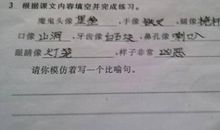 3 根据课文内容填空并完成练习。
魔鬼头像堡垒、手像铁叉、腿像桅杆
口像山洞、牙齿像白石块、鼻孔像喇叭
眼睛像灯笼、样子非常凶恶
请你模仿着写一个比喻句。